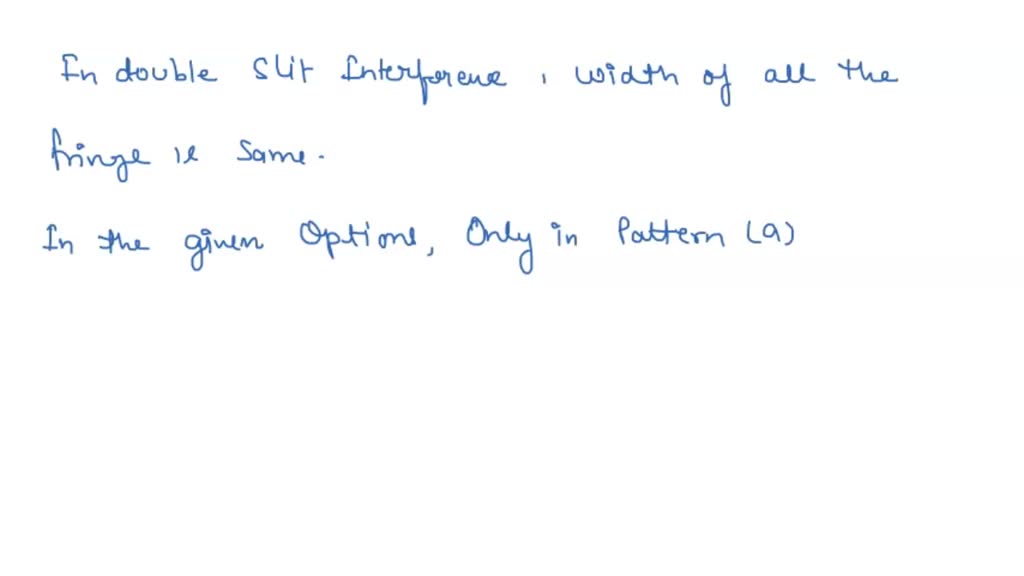 In double Slit Interference, width of all the
fringe is same.
In the given Options, Only in Pattern (a)